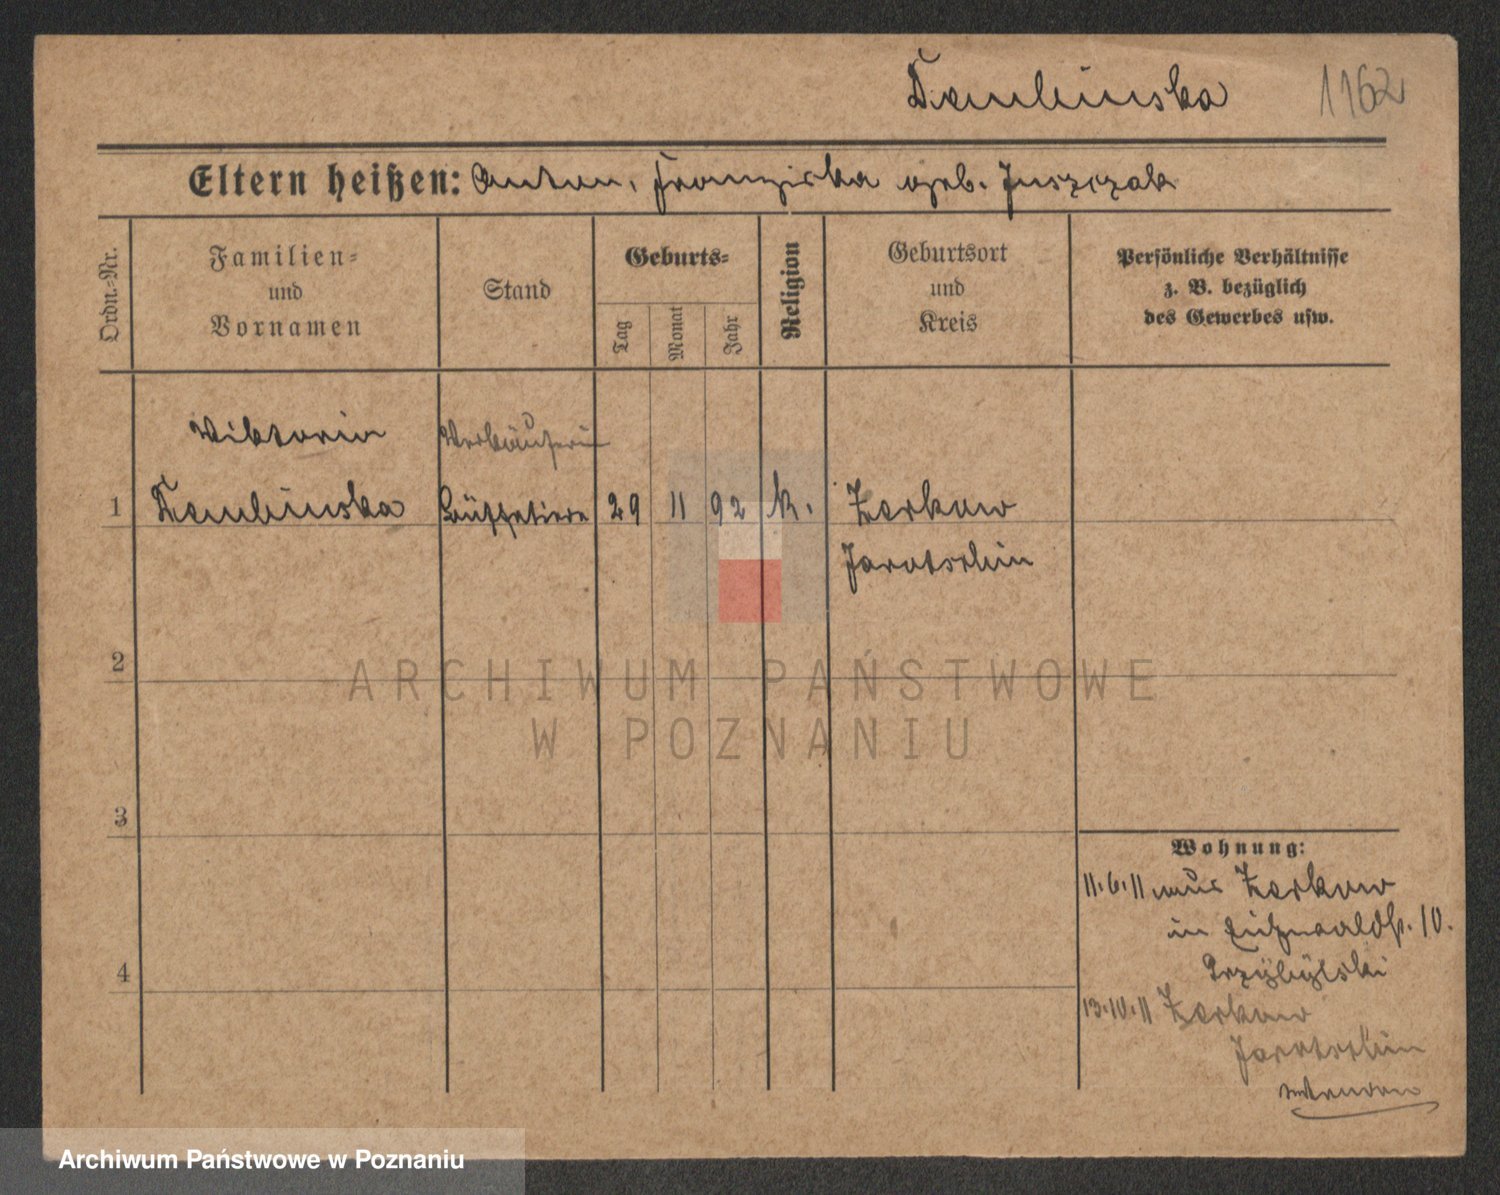 Dembinska 1162
Eltern heißen: Anton, Franziska geb. Juszczak
Ordn.-Nr.
Familien-
und
Vornamen
Stand
Geburts-
Tag
Monat
Jahr
Religion
Geburtsort
und
Kreis
Persönliche Verhältnisse
z. B. bezüglich
des Gewerbes usw.
Viktoria Verkäuferin
1 Dembinska Büffetiere 29 11 92 k. Zerkow
Jarotschin
2
ARCHIWUM PAŃSTWOWE
W POZNANIU
3
Wohnung:
11.6.11 aus Zerkow
in 10.
Przybylski
4
13.10.11 Zerkow
Jarotschin
Archiwum Państwowe w Poznaniu